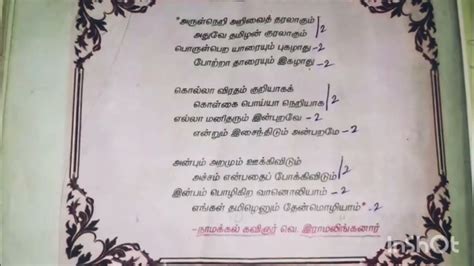 *அருள்நெறி அறிவைத் தரலாகும் /2
அதுவே தமிழன் குரலாகும்
பொருள்பெற யாரையும் புகழாது -2
போற்றா தாரையும் இகழாது -2
கொல்லா விரதம் குறியாகக் /2
கொள்கை பொய்யா நெறியாக
எல்லா மனிதரும் இன்புறவே -2
என்றும் இசைந்திடும் அன்பறமே -2
அன்பும் அறமும் ஊக்கிவிடும் /2
அச்சம் என்பதைப் போக்கிவிடும்
இன்பம் பொழிகிற வானொலியாம் -2
எங்கள் தமிழெனும் தேன்மொழியாம்* -2
-நாமக்கல் கவிஞர் வெ. இராமலிங்கனார்
InShOt